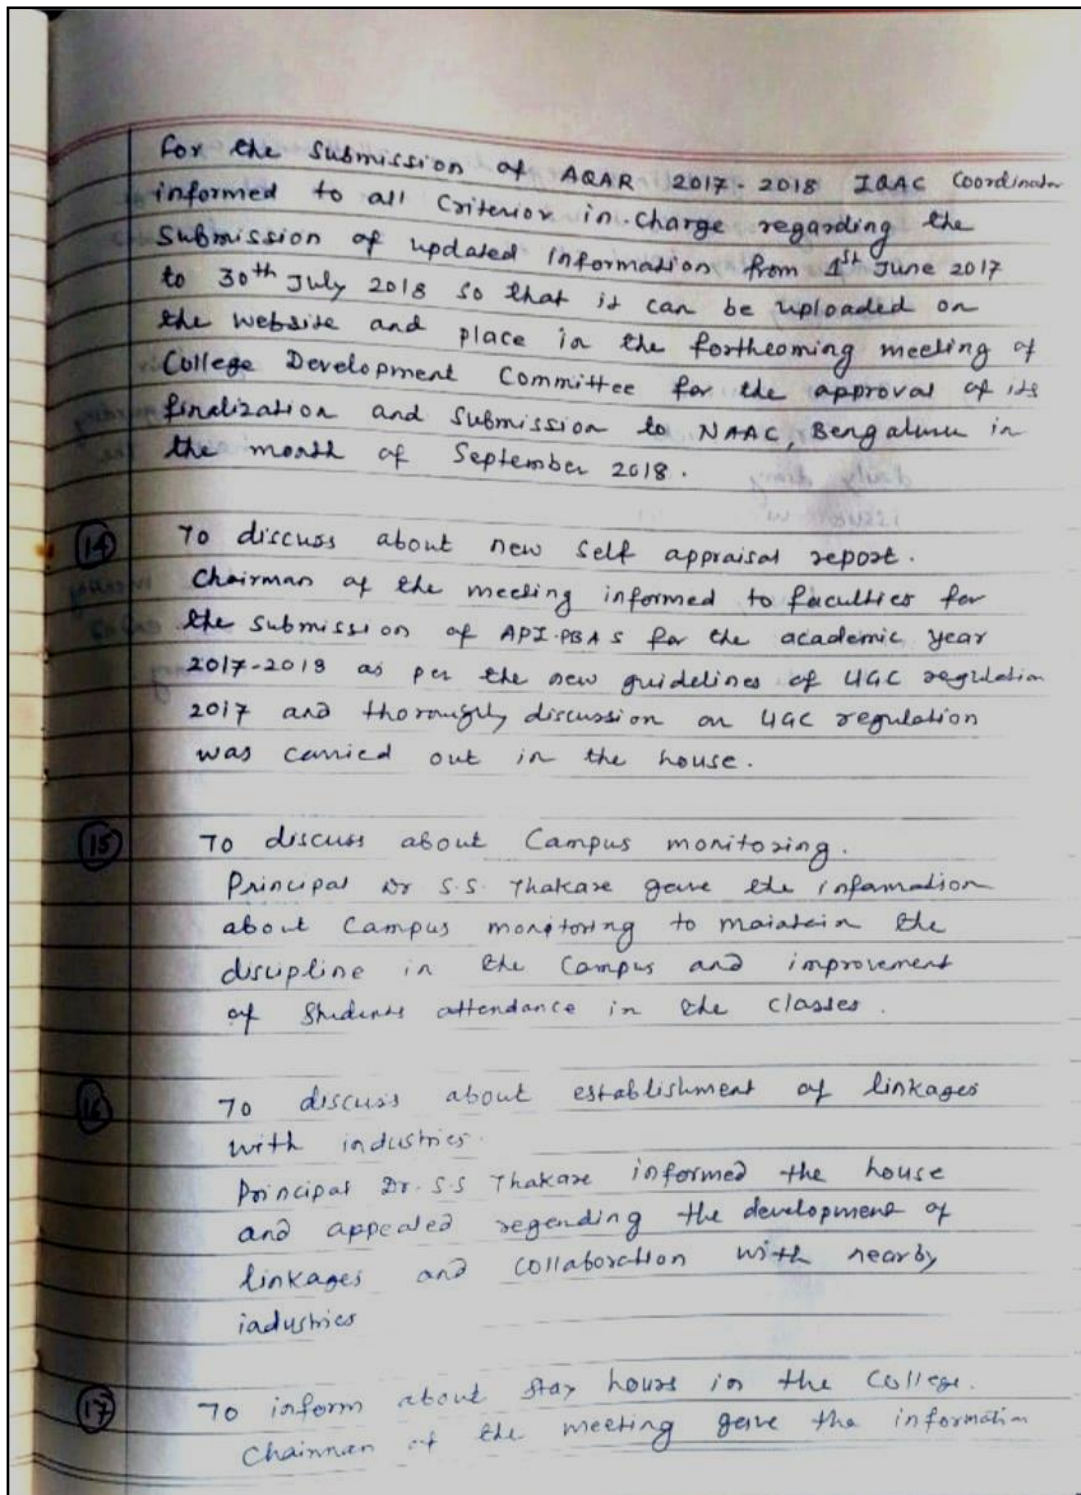 For the Submission of AQAR 2017-2018 IQAC Coordinator
informed to all Criterior in.charge regarding the
Submission of updated Information from 1st June 2017
to 30th July 2018 so that it can be uploaded on
the website and place in the forthcoming meeting of
College Development Committee for the approval of its
finalization and Submission to NAAC, Bengaluru in
the month of September 2018.
14 To discuss about new Self appraisal report.
Chairman of the meeting informed to faculties for
the submission of API.PBAS for the academic year
2017-2018 as per the new guidelines of UGC regulation
2017 and thoroughly discussion on UGC regulation
was carried out in the house.
15 To discuss about Campus monitoring.
Principal Dr S.S. Thakare gave the information
about Campus monitoring to maintain the
discipline in the Campus and improvement
of Students attendance in the classes.
16 To discuss about establishment of linkages
with industries.
Principal Dr. S.S Thakare informed the house
and appealed regending the development of
linkages and collaboration with nearby
industries
17 To inform about stay hours in the College.
Chairman of the meeting gave the information